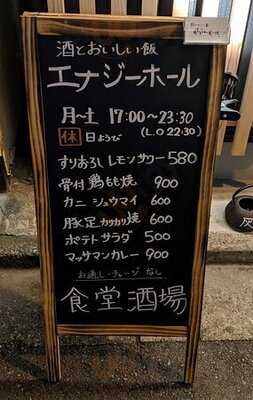 酒とおいしい飯
エナジーホール
月〜土 17:00〜23:30
(L.O 22:30)
休 日ようび
すりおろし レモンサワー 580
骨付鶏もも焼 900
カニ シュウマイ 600
豚足 カリカリ焼 600
ポテトサラダ 500
マッサマンカレー 900
お通し・チャージ なし
食堂酒場